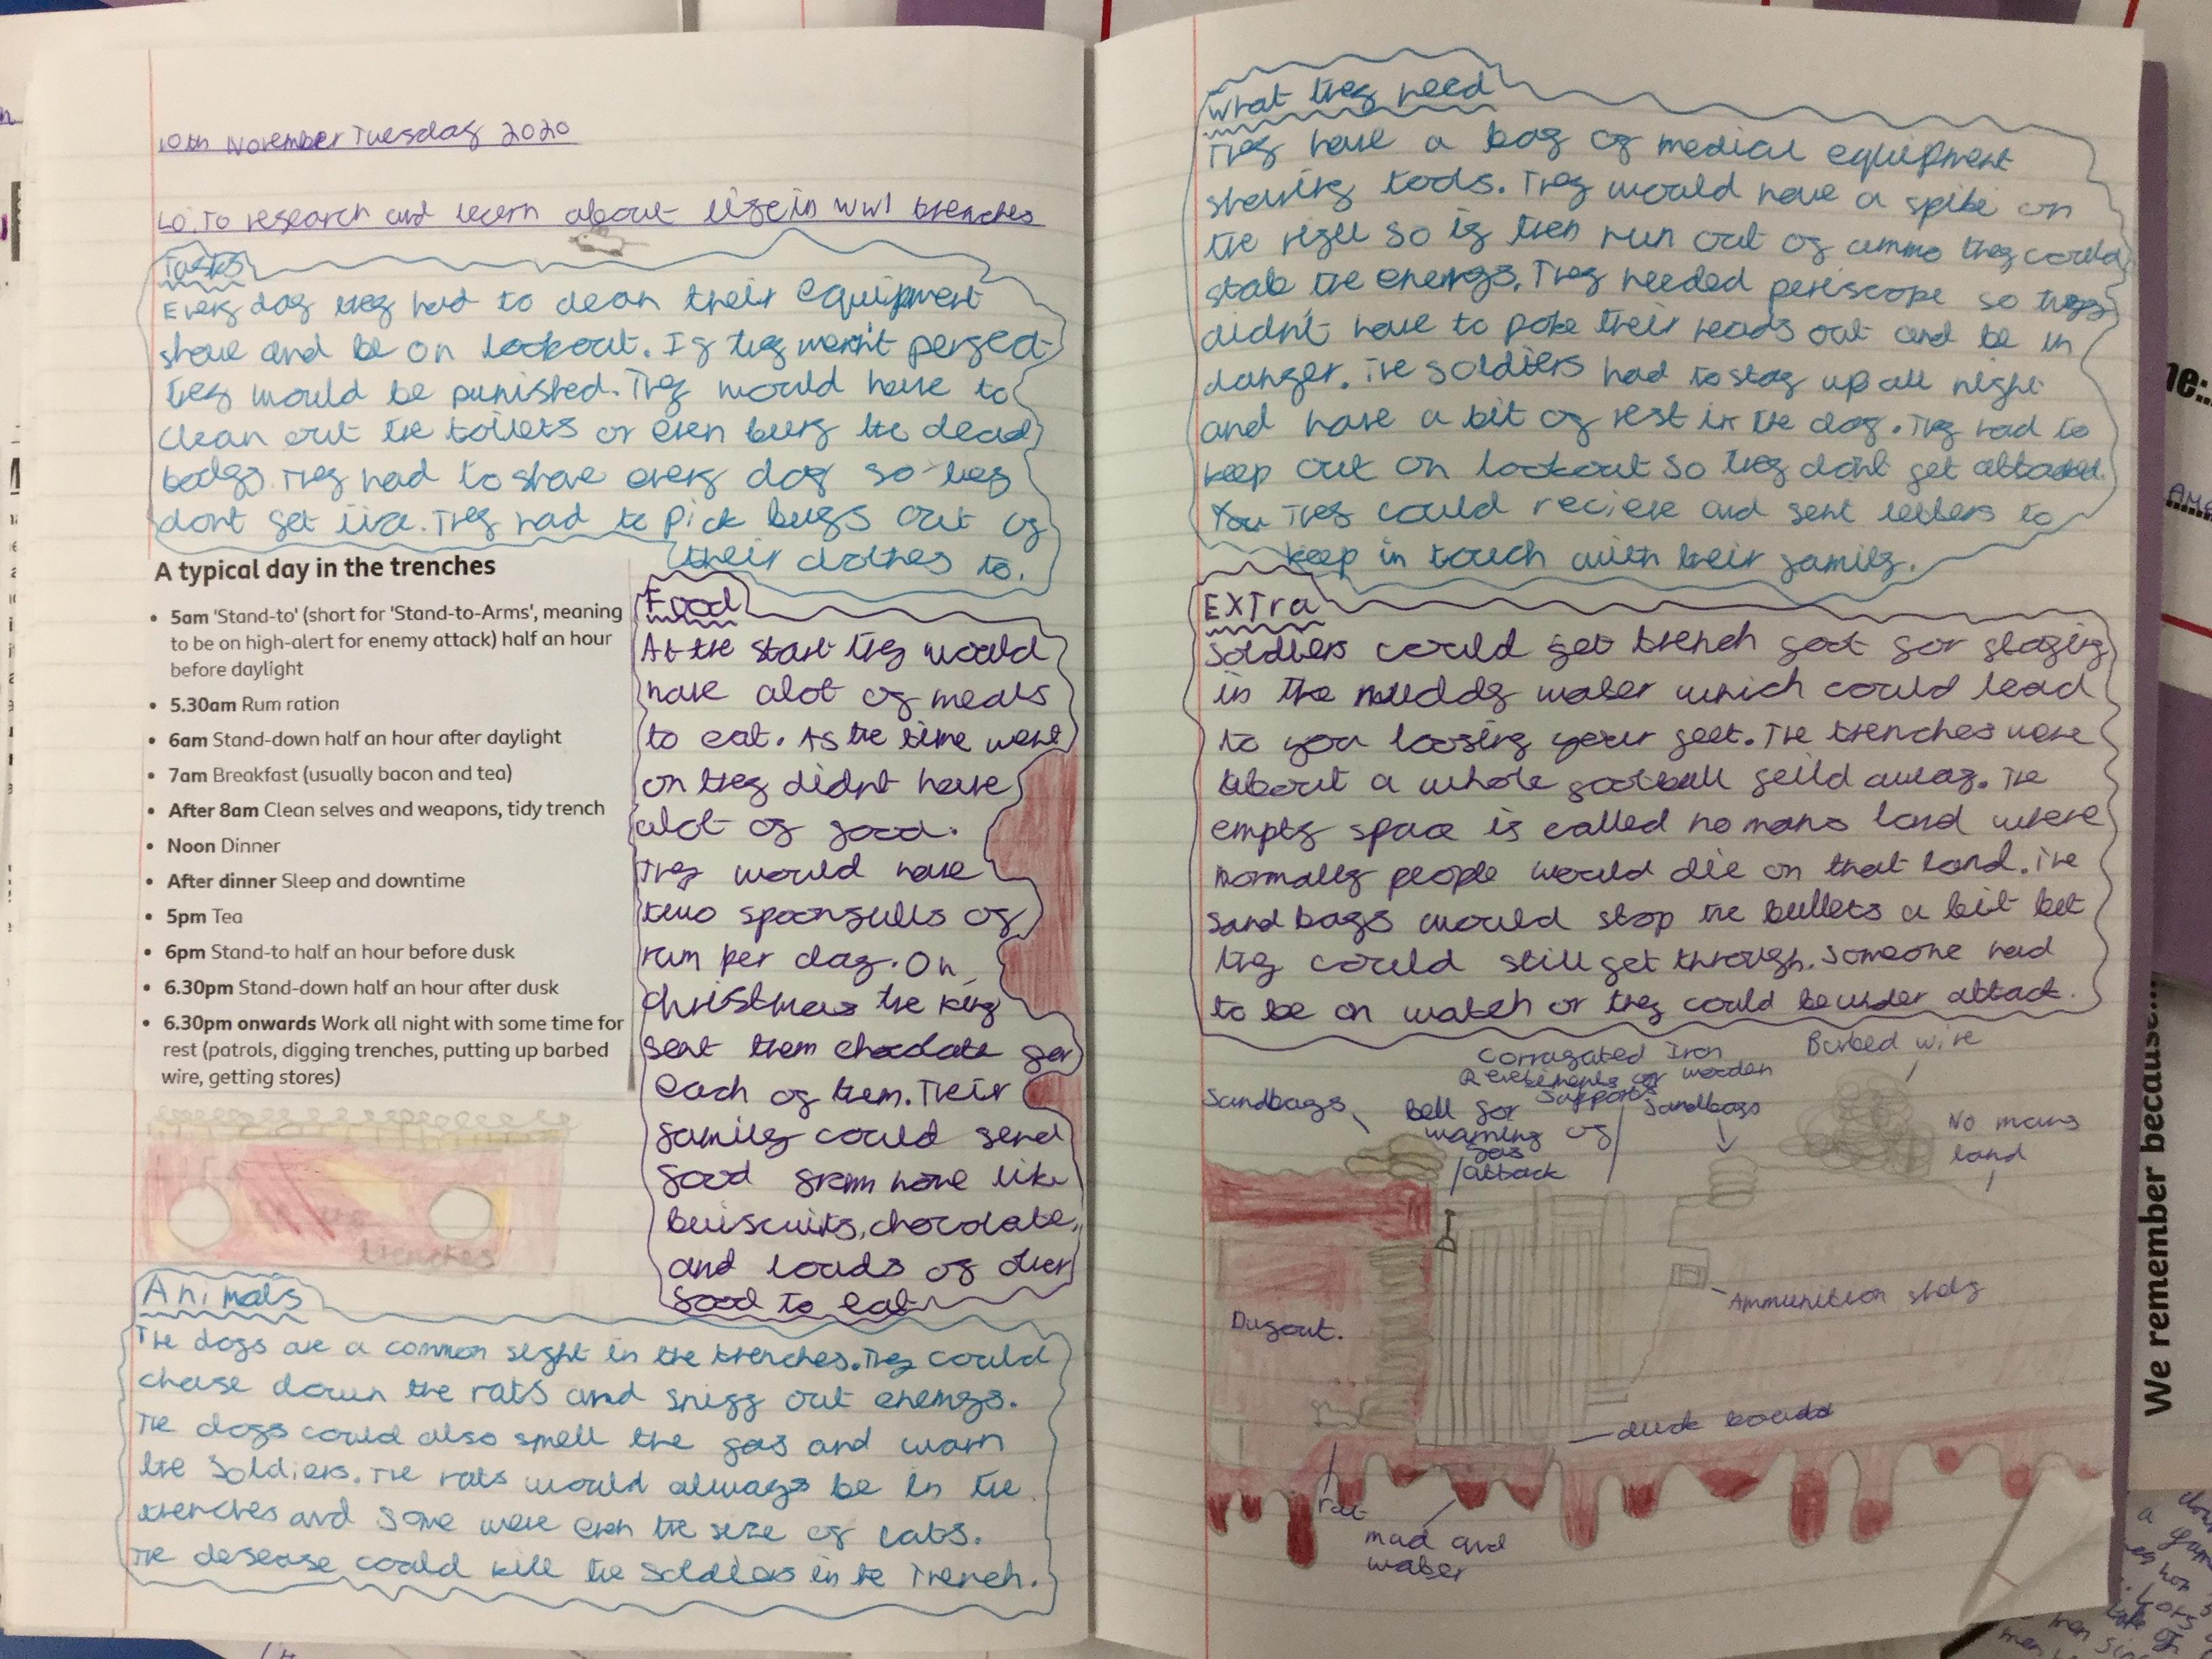 10th November Tuesday 2020
LO: To research and learn about life in WW1 trenches
Tasks
Every day they had to clean their equipment
shave and be on lookout. If they wern't perfect
they would be punished. They would have to
clean out the toilets or even bury the dead
bodys. They had to shave every day so they
dont get lice. They had to pick bugs out of
their clothes to.
A typical day in the trenches
• 5am 'Stand-to' (short for 'Stand-to-Arms', meaning
to be on high-alert for enemy attack) half an hour
before daylight
• 5.30am Rum ration
• 6am Stand-down half an hour after daylight
• 7am Breakfast (usually bacon and tea)
• After 8am Clean selves and weapons, tidy trench
• Noon Dinner
• After dinner Sleep and downtime
• 5pm Tea
• 6pm Stand-to half an hour before dusk
• 6.30pm Stand-down half an hour after dusk
• 6.30pm onwards Work all night with some time for
rest (patrols, digging trenches, putting up barbed
wire, getting stores)
Food
At the start they would
have alot of meals
to eat. As the time went
on they didn't have
alot of food.
They would have
two spoonfulls of
rum per day. On
christmas the king
sent them chocolate for
each of them. Their
family could send
food from home like
buiscuits, chocolate,
and loads of other
food to eat
trenches
Animals
The dogs are a common sight in the trenches. They could
chase down the rats and sniff out enemys.
The dogs could also smell the gas and warn
the soldiers. The rats would always be in the
trenches and some were even the size of cats.
The desease could kill the soldiers in te trench.
What they need
They have a bag of medical equipment
shaving tools. They would have a spike on
the rifle so if then run out of ammo they could
stab the enemys. They needed periscope so they
didn't have to poke their heads out and be in
danger. The soldiers had to stay up all night
and have a bit of rest in the day. They had to
keep out on lookout so they don't get attacked.
You They could recieve and sent letters to
keep in touch with their family.
EXTra
Soldiers could get trench foot for staying
in the muddy water which could lead
to you loosing your feet. The trenches were
about a whole football feild away. The
empty space is called no mans land where
normally people would die on that land. The
sand bags would stop the bullets a bit but
they could still get through. Someone had
to be on watch or they could be under attack.
Sandbags
Bell for
warning of
gas
attack
Corrugated Iron
Revetements or wooden
supports
Sandbags
Barbed wire
No mans
land
Dugout.
Ammunition
duck boards
rat
mud and
water
We remember because...